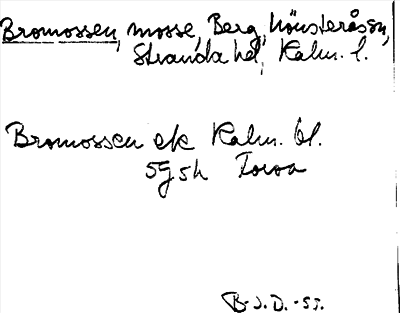 Bromossen, mosse, Berg, Mönsterås sn,
Stranda hd, Kalm. l.
Bromossen ek Kalm. bl.
5g5h Toroa
B-J.D.-55.